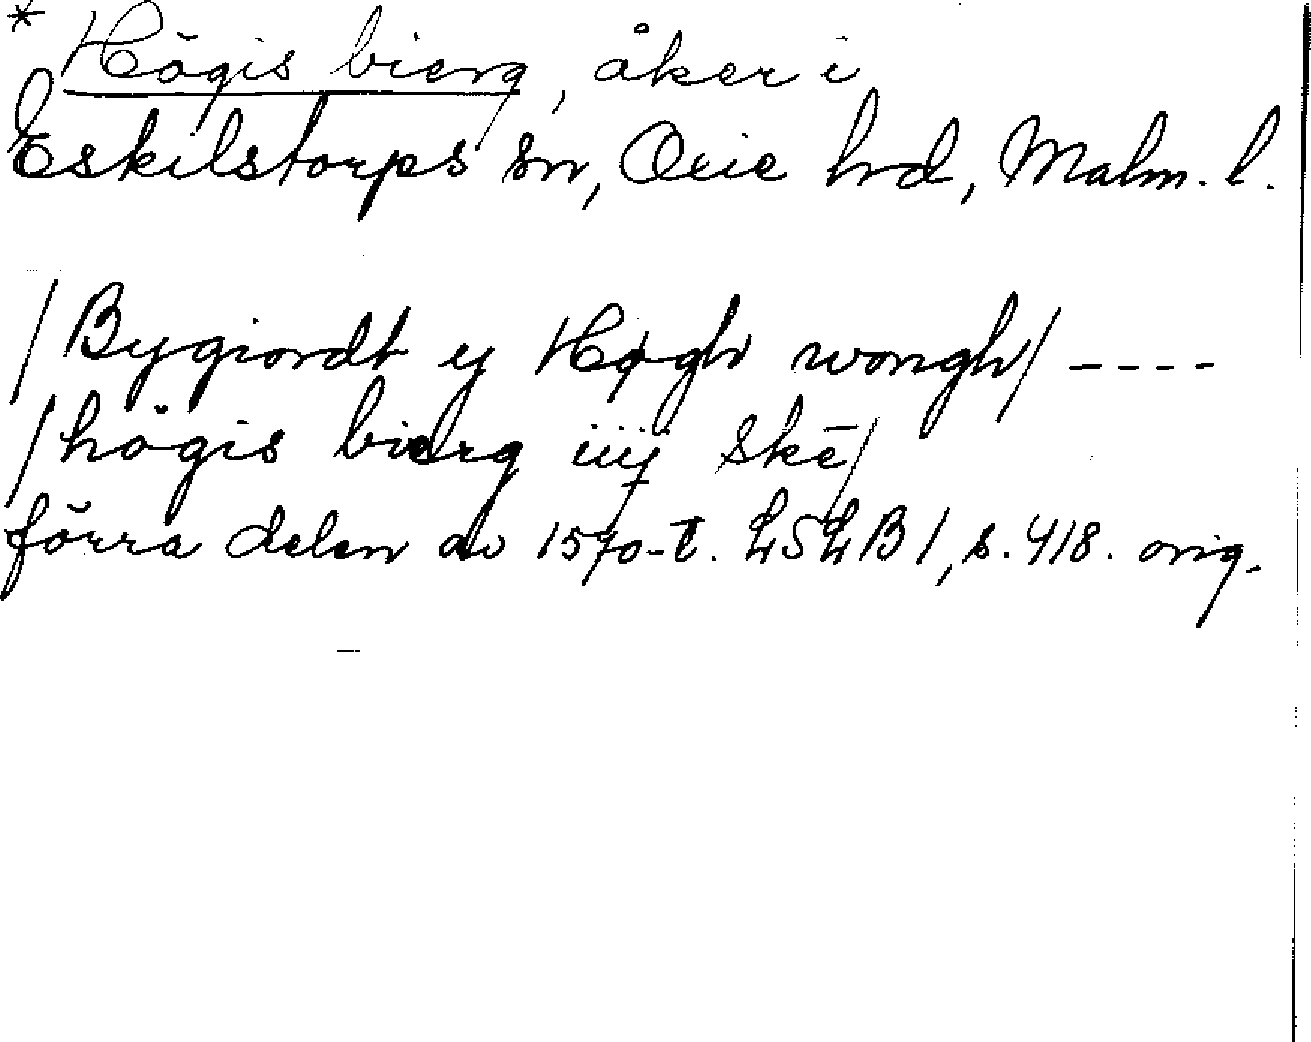 * Högis bierg, åker i
Eskilstorps sn, Oxie hd, Malm. l.
/Bygiordt y Høgh wongh/ ----
/högis bierg iiij skē/
förra delen av 1570-t. LSLB 1, s. 418. orig.